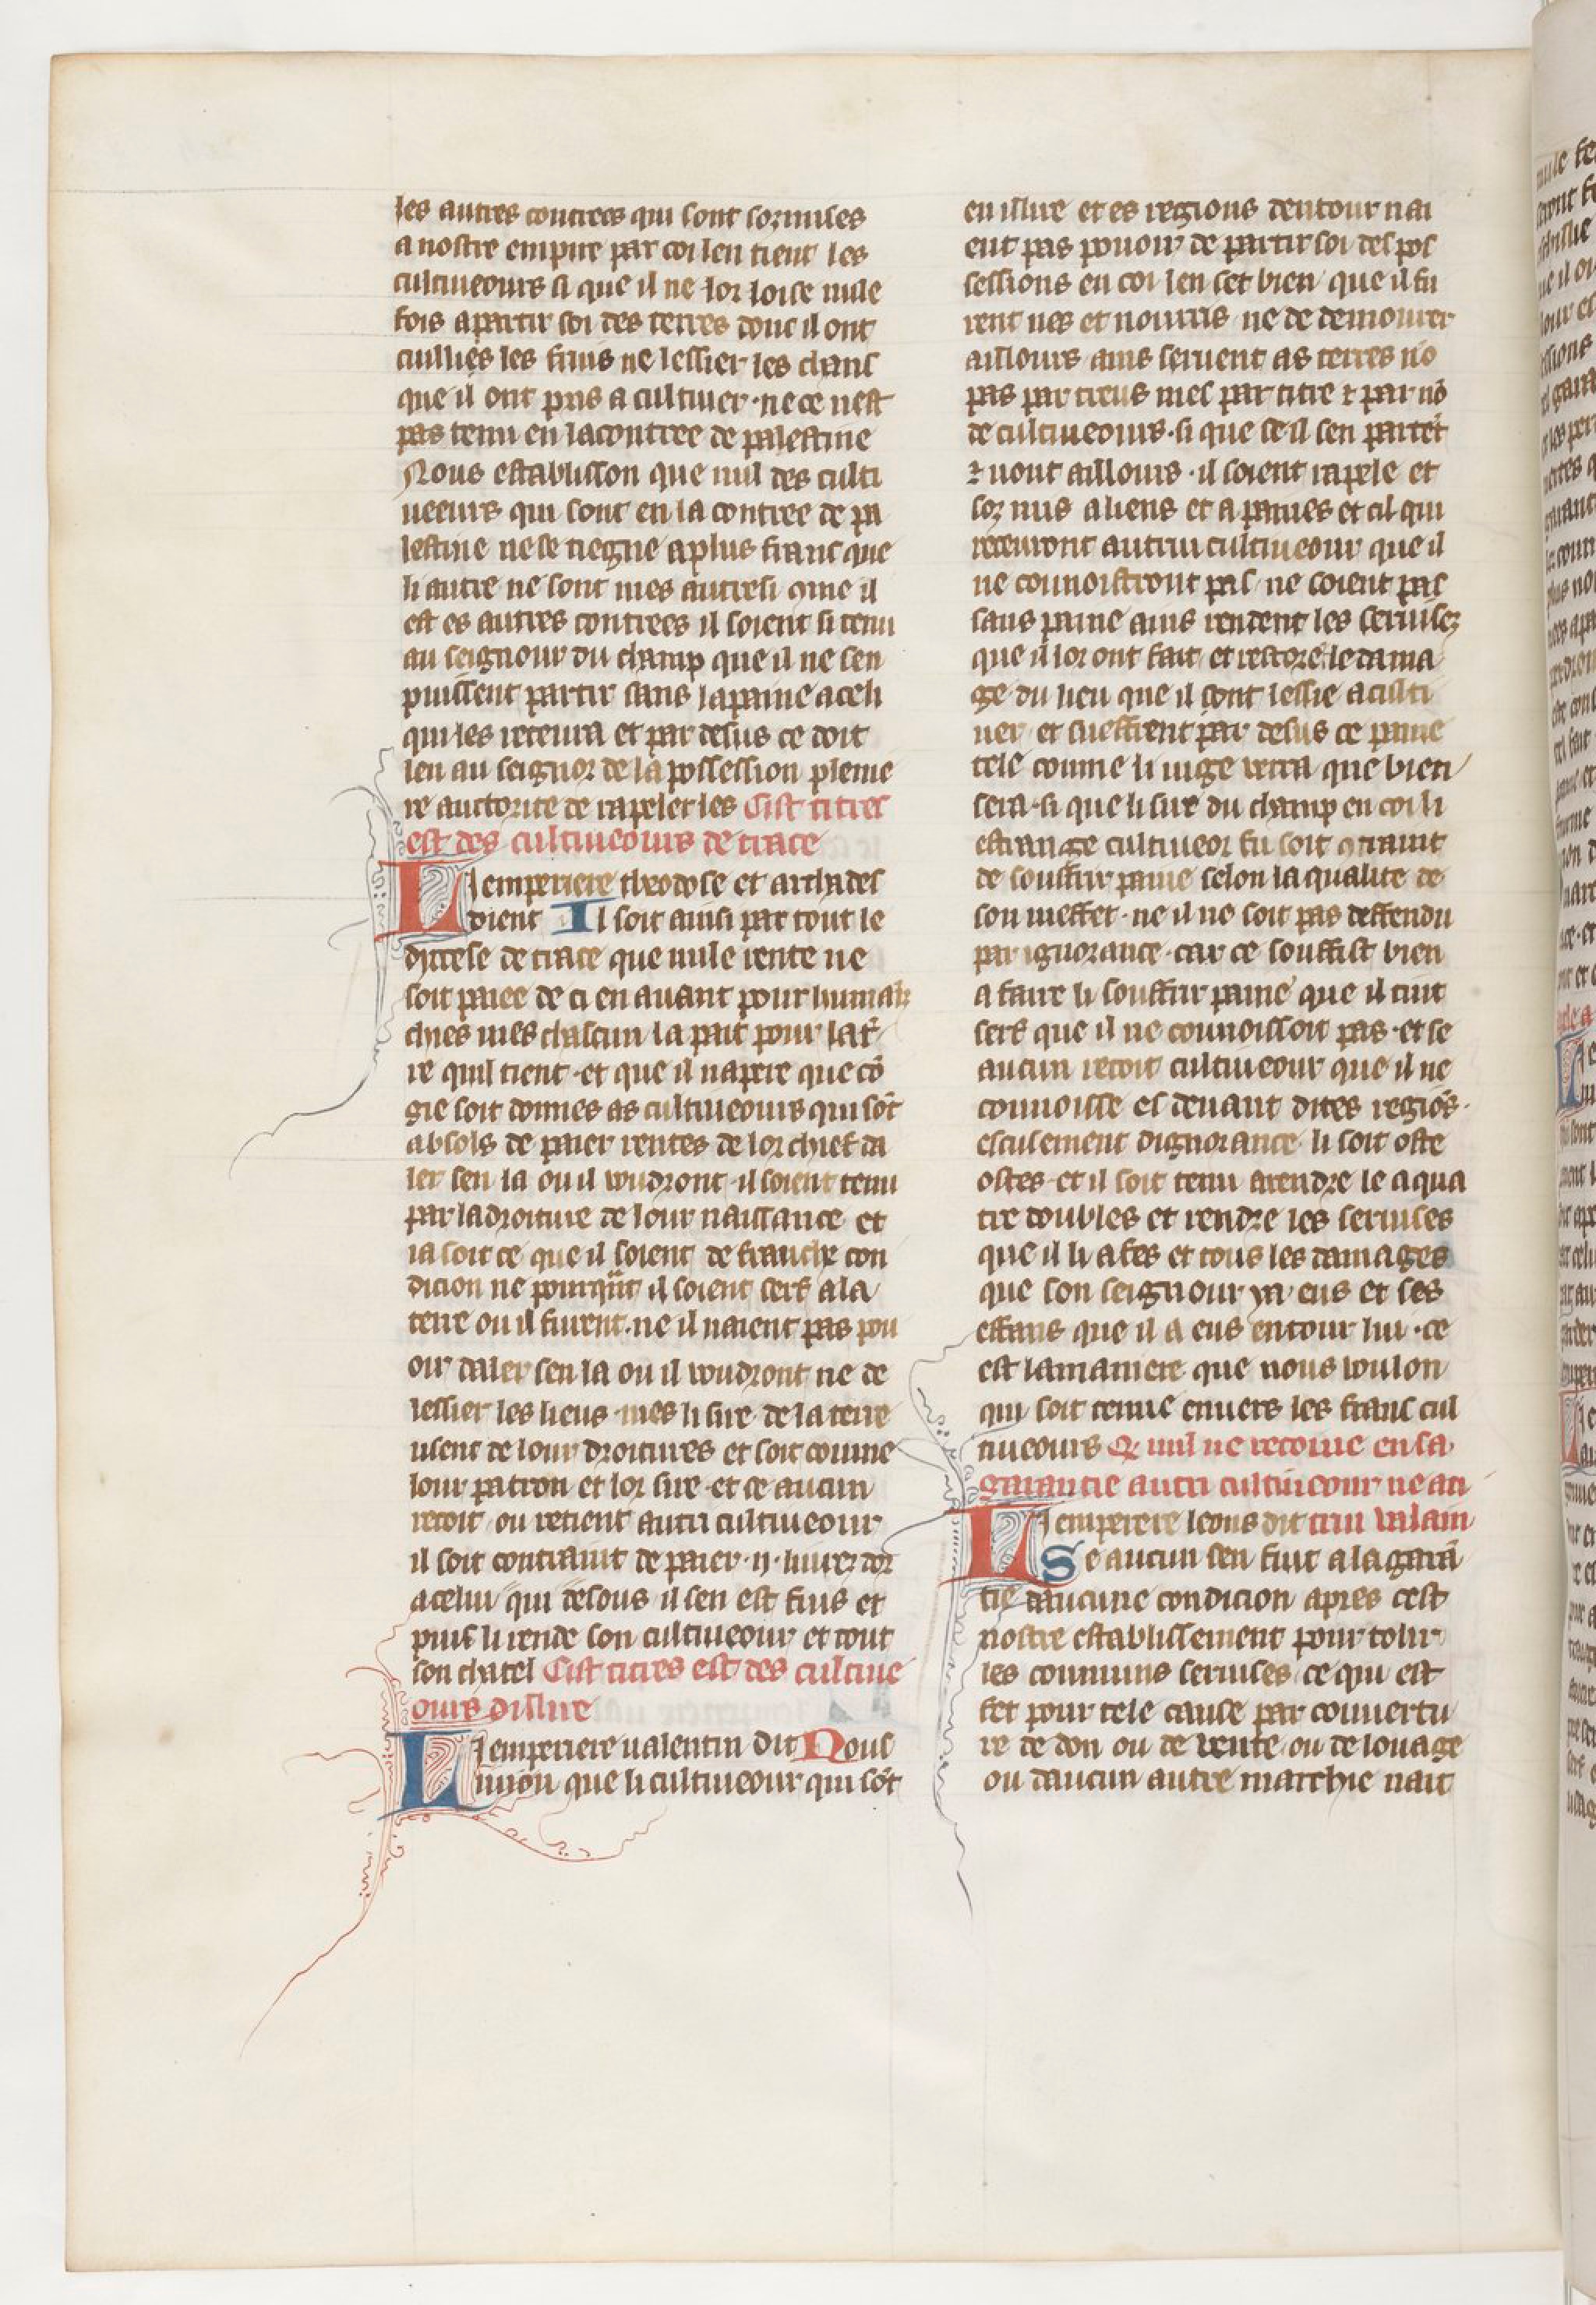 les autres contrees qui sont sozmises
a nostre empire par coi len tient les
cultiueours si que il ne loz loise nule
fois a partir soi des terres dont il ont
cullies les fruis ne lessier les chans
que il ont pris a cultiuer · ne ce nest
pas tenu en la contree de palestine
Nous establisson que nul des culti
ueeurs qui sont en la contree de pa
lestine ne se tiegne a plus franc que
li autre ne sont mes autresi ɔme il
est es autres contrees il soient si tenu
au seignour du champ que il ne sen
puissent partir sans la paine a celi
qui les receura et par desus ce doit
len au seignoz de la possession pleine
re auctorite de rapeler les Cist titres
est des cultiueours de trace
Li emperiere theodose et archades
dient Il soit ainsi par tout le
dyocese de trace que nule rente ne
soit paiee de ci en auant pour humais
chies mes chascun la pait pour la t̃
re quil tient · et que il napere que cõ
gie soit donnes as cultiueours qui sõt
absols de paier rentes de loz chief da
ler sen la ou il voudzont · il soient tenu
par la dzoiture de lour naissance et
ia soit ce que il soient de franche con
dicion ne pourq̃nt il soient serf a la
terre ou il furent · ne il naient pas pou
oir daler sen la ou il voudzont ne de
lessier les lieus · mes li sire de la terre
usent de lour dzoitures et soit comme
lour patron et loz sire · et se aucun
recoit ou retient autri cultiueour
il soit contraint de paier · ij · liurez doz
a celui qui desous il sen est fuis et
puis li rende son cultiueour et tout
son chatel Cist titres est des cultiue
ours dislire
Li emperiere ualentin dit Nous
iuion que li cultiueour qui sõt
en islire et es regions dentour nai
ent pas pouoir de partir soi des pos
sessions en coi len set bien que il fu
rent nes et nourris ne de demourer
aillours ains seruent as terres nõ
pas par treus mes par titre ⁊ par nõ
de cultiueours · si que se il sen partẽt
⁊ uont aillours · il soient rapele et
soz mis a liens et a paines et cil qui
receuront autrui cultiueour que il
ne connoistront pas ne soient pas
sans paine ains rendent les seruisez
que il loz ont fait et restoze le dama
ge du lieu que il sont lessie a culti
uer et sueffrent par desus ce paine
tele comme li iuge verra que bien
sera · si que li sire du champ en coi li
estrange cultiueoz fu soit ɔtraint
de souffrir paine selon la qualite de
son meffet · ne il ne soit pas deffendu
par ignozance · car ce souffist bien
a faire li souffrir paine que il tint
serf que il ne connoissoit pas · et se
aucun recoit cultiueour que il ne
connoisse es deuant dites regiõs ·
escusement dignozance li soit oste
ostes · et il soit tenu a rendze le a qua
tre doubles et rendze les seruises
que il li a fes et tous les damages
que son seignour y a eus et ses
effans que il a eus entour lui · ce
est la maniere que nous voulon
qui soit tenue enuers les franc cul
tiueours Q nul ne recoiue en sa
garantie autri cultiueour ne an
Li emperere leons dit
Se aucun sen fuit a la garã
tie daucune condicion apres cest
nostre establissement pour tolir
les communs seruises ce qui est
fet pour tele cause par couuertu
re de don ou de vente ou de louage
ou daucun autre marchie nait